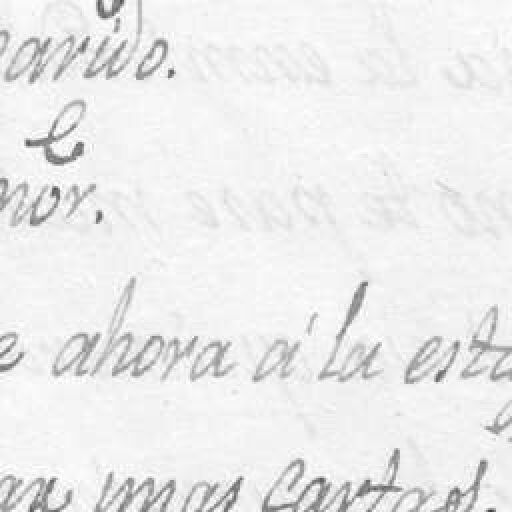 arido.
C
nor.
e ahora á la esta
an unas cartas.